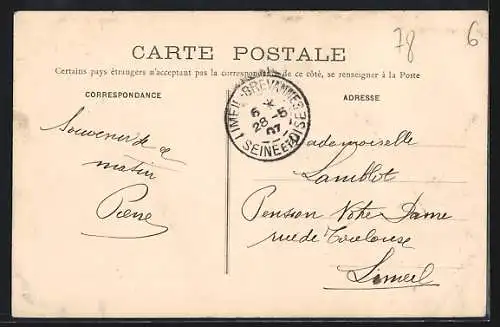 78 6
CARTE POSTALE
Certains pays étrangers n'acceptant pas la correspondance de ce côté, se renseigner à la Poste
CORRESPONDANCE
ADRESSE
LIMEIL-BREVANNES
6 *
28 -5
07
SEINE ET OISE
Souvenir de ce
matin
Pierre
Mademoiselle
Lamblot
Pension Notre Dame
rue de Toulouse
Limeil